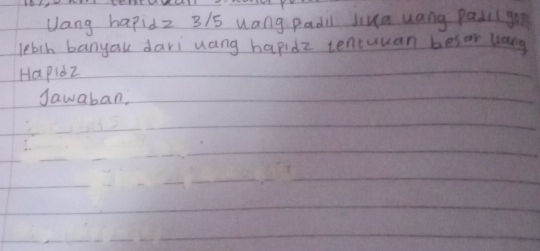 Uang hapidz 3/5 uang Padil Jika uang Padil
lebih banyak dari uang hapidz tentukan besar uang
Hapidz
Jawaban.